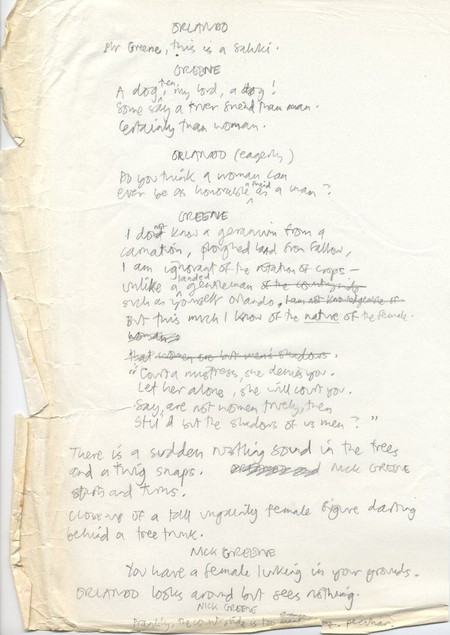 ORLANDO
Mr Greene, this is a saluki.
GREENE
A dog then, my lord, a dog!
Some say a truer friend than man.
Certainly than woman.
ORLANDO (eagerly)
Do you think a woman can
ever be as honorable a friend as a man?
GREENE
I do not know a geranium from a
carnation, ploughed land from fallow,
I am ignorant of the rotation of crops –
unlike a landed gentleman of the countryside
such as yourself Orlando, I am not knowledgeable of
But this much I know of the nature of the female.
woman
that women are but men's shadows.
"Court a mistress, she denies you.
Let her alone, she will court you.
Say, are not women truly, then
Still'd but the shadows of us men?"
There is a sudden rustling sound in the trees
and a twig snaps. NICK GREENE
starts and turns.
Close-up of a tall ungainly female figure darting
behind a tree trunk.
NICK GREENE
You have a female lurking in your grounds.
ORLANDO looks around but sees nothing.
NICK GREENE
Frankly, the countryside is too